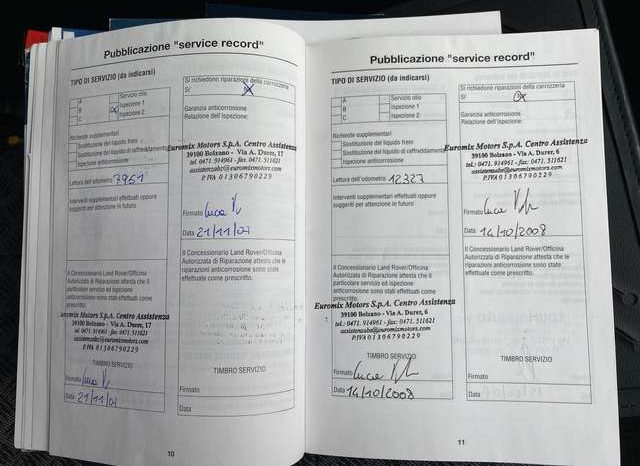 Pubblicazione "service record"
TIPO DI SERVIZIO (da indicarsi)
A
B
C
Servizio olio
Ispezione 1
Ispezione 2
Richieste supplementari
Sostituzione del liquido freni
Sostituzione del liquido di raffreddamento
Ispezione anticorrosione
Lettura dell'odometro 7951
Interventi supplementari effettuati oppure
suggeriti per attenzione in futuro
Il Concessionario Land Rover/Officina
Autorizzata di Riparazione attesta che il
particolare servizio ed ispezione
anticorrosione sono stati effettuati come
prescritto.
Euromix Motors S.p.A. Centro Assistenza
39100 Bolzano - Via A. Durer, 17
tel. 0471. 914961 - fax. 0471. 511621
assistenzabz@euromixmotors.com
P.IVA 01306790229
TIMBRO SERVIZIO
Firmato
Data 21/11/07
Si richiedono riparazioni della carrozzeria
Sì
Garanzia anticorrosione
Relazione dell'ispezione:
Euromix Motors S.p.A. Centro Assistenza
39100 Bolzano - Via A. Durer, 17
tel. 0471. 914961 - fax. 0471. 511621
assistenzabz@euromixmotors.com
P.IVA 01306790229
Firmato Luca
Data 21/11/07
Il Concessionario Land Rover/Officina
Autorizzata di Riparazione attesta che le
riparazioni anticorrosione sono state
effettuate come prescritto.
TIMBRO SERVIZIO
Firmato
Data
10
Pubblicazione "service record"
TIPO DI SERVIZIO (da indicarsi)
A
B
C
Servizio olio
Ispezione 1
Ispezione 2
Richieste supplementari
Sostituzione del liquido freni
Sostituzione del liquido di raffreddamento
Ispezione anticorrosione
Lettura dell'odometro 12327
Interventi supplementari effettuati oppure
suggeriti per attenzione in futuro
Il Concessionario Land Rover/Officina
Autorizzata di Riparazione attesta che il
particolare servizio ed ispezione
anticorrosione sono stati effettuati come
prescritto.
Euromix Motors S.p.A. Centro Assistenza
39100 Bolzano - Via A. Durer, 6
tel.: 0471. 914961 - fax. 0471. 311621
assistenzabz@euromixmotors.com
P.IVA 01306790229
TIMBRO SERVIZIO
Firmato Luca
Data 14/10/2008
Si richiedono riparazioni della carrozzeria
Sì
Garanzia anticorrosione
Relazione dell'ispezione:
Euromix Motors S.p.A. Centro Assistenza
39100 Bolzano - Via A. Durer, 6
tel.: 0471. 914961 - fax. 0471. 311621
assistenzabz@euromixmotors.com
P.IVA 01306790229
Firmato Luca
Data 14/10/2008
Il Concessionario Land Rover/Officina
Autorizzata di Riparazione attesta che le
riparazioni anticorrosione sono state
effettuate come prescritto.
TIMBRO SERVIZIO
Firmato
Data
11